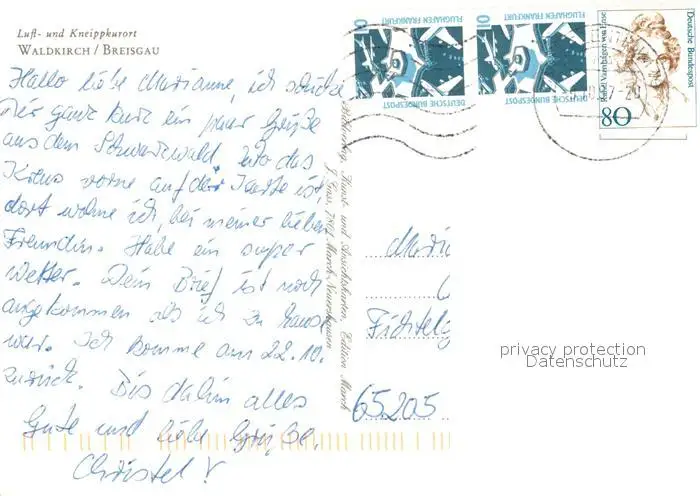 Luft- und Kneippkurort
WALDKIRCH / BREISGAU
Hallo liebe Marianne, ich schicke
Dir ganz kurz ein paar Grüße
aus dem Schwarzwald, wo das
Kreuz vorne auf der Karte ist,
dort wohne ich, bei meiner lieben
Freundin. Habe ein super
Wetter. Dein Brief ist noch
angekommen als ich zu hause
war. Ich komme am 22.10.
zurück. Bis dahin alles
Gute und liebe Grüße.
Christel
Kunst- und Ansichtskarten, Edition March
7801 March-Neuershausen
FLUGHAFEN FRANKFURT
10
DEUTSCHE BUNDESPOST
FLUGHAFEN FRANKFURT
10
DEUTSCHE BUNDESPOST
Rahel Varnhagen von Ense
Deutsche Bundespost
80
Mari
Fichtelg
65205
privacy protection
Datenschutz